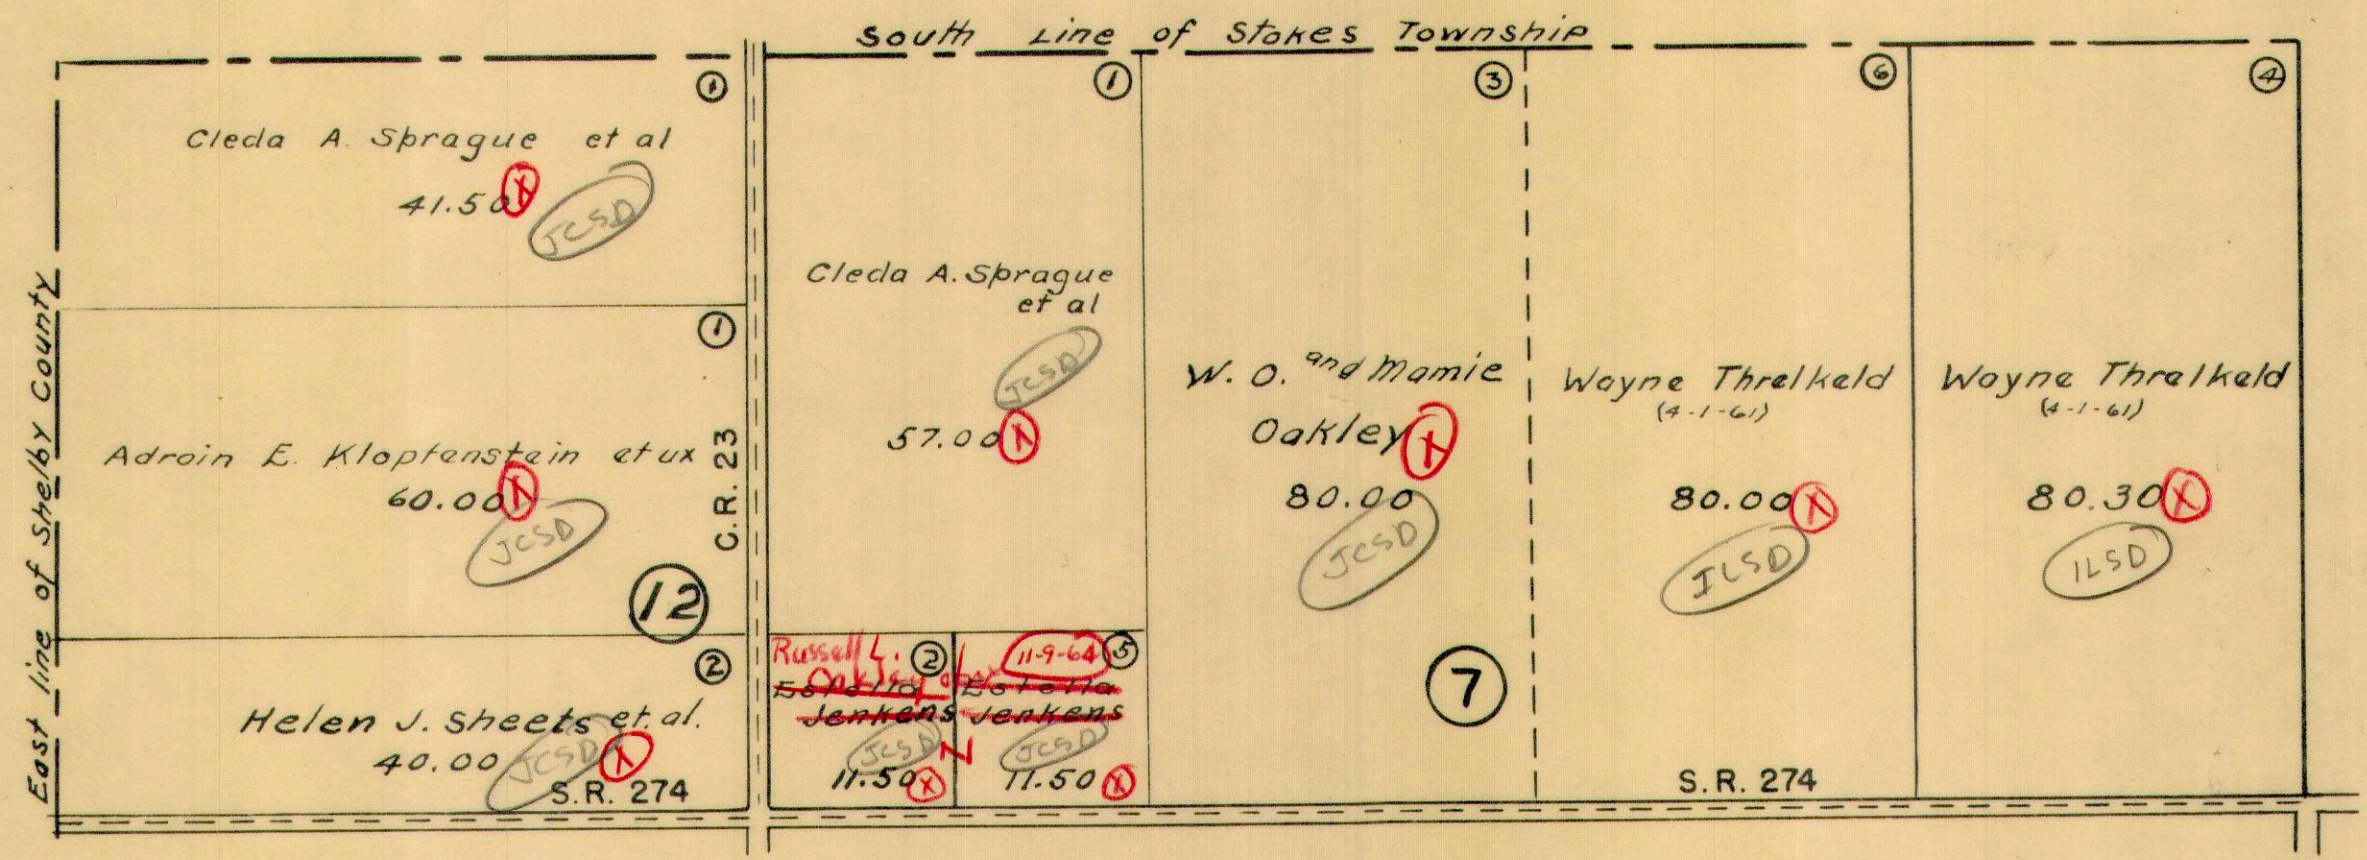 South Line of Stokes Township
East line of Shelby County
1
Cleda A. Sprague et al
41.50 X
JCSD
1
Adroin E. Klopfenstein et ux
60.00 X
JCSD
12
C.R. 23
2
Helen J. Sheets et. al.
40.00 JCSD X
S.R. 274
1
Cleda A. Sprague
et al
JCSD
57.00 X
Russell L.
Oakley
2
Estella
Jenkens
JCSD
11.50 X
Z
11-9-64
5
Estella
Jenkens
JCSD
11.50 X
3
W. O. and Mamie
Oakley X
80.00
JCSD
7
6
Wayne Threlkeld
(4-1-61)
80.00 X
ILSD
S.R. 274
4
Wayne Threlkeld
(4-1-61)
80.30 X
ILSD